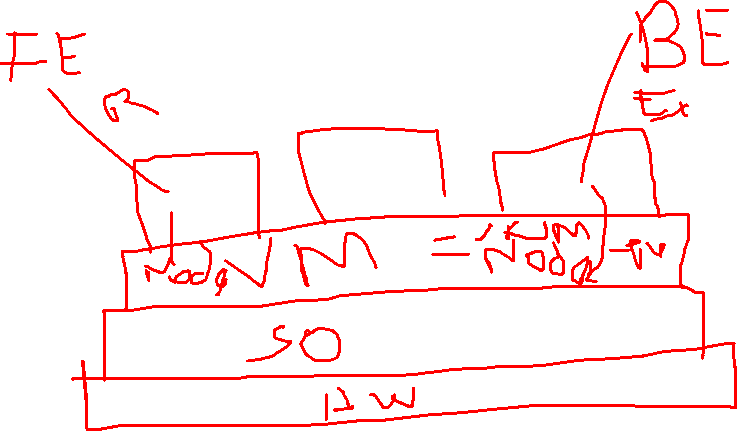 FE
BE
Ex
Node VM = JVM
Node
SO
HW